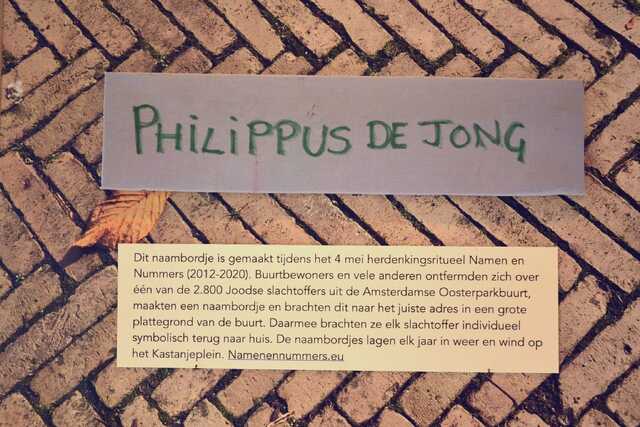 PHiLiPPUS DE JONG
Dit naambordje is gemaakt tijdens het 4 mei herdenkingsritueel Namen en
Nummers (2012-2020). Buurtbewoners en vele anderen ontfermden zich over
één van de 2.800 Joodse slachtoffers uit de Amsterdamse Oosterparkbuurt,
maakten een naambordje en brachten dit naar het juiste adres in een grote
plattegrond van de buurt. Daarmee brachten ze elk slachtoffer individueel
symbolisch terug naar huis. De naambordjes lagen elk jaar in weer en wind op
het Kastanjeplein. Namenennummers.eu